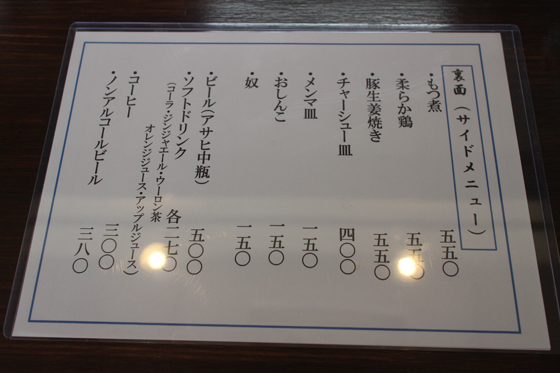 裏面（サイドメニュー）
・もつ煮 五五〇
・柔らか鶏 五五〇
・豚生姜焼き 五五〇
・チャーシュー皿 四〇〇
・メンマ皿 一五〇
・おしんこ 一五〇
・奴 一五〇
・ビール（アサヒ中瓶） 五〇〇
・ソフトドリンク 各二七〇
（コーラ・ジンジャエール・ウーロン茶
オレンジジュース・アップルジュース）
・コーヒー 三〇〇
・ノンアルコールビール 三八〇